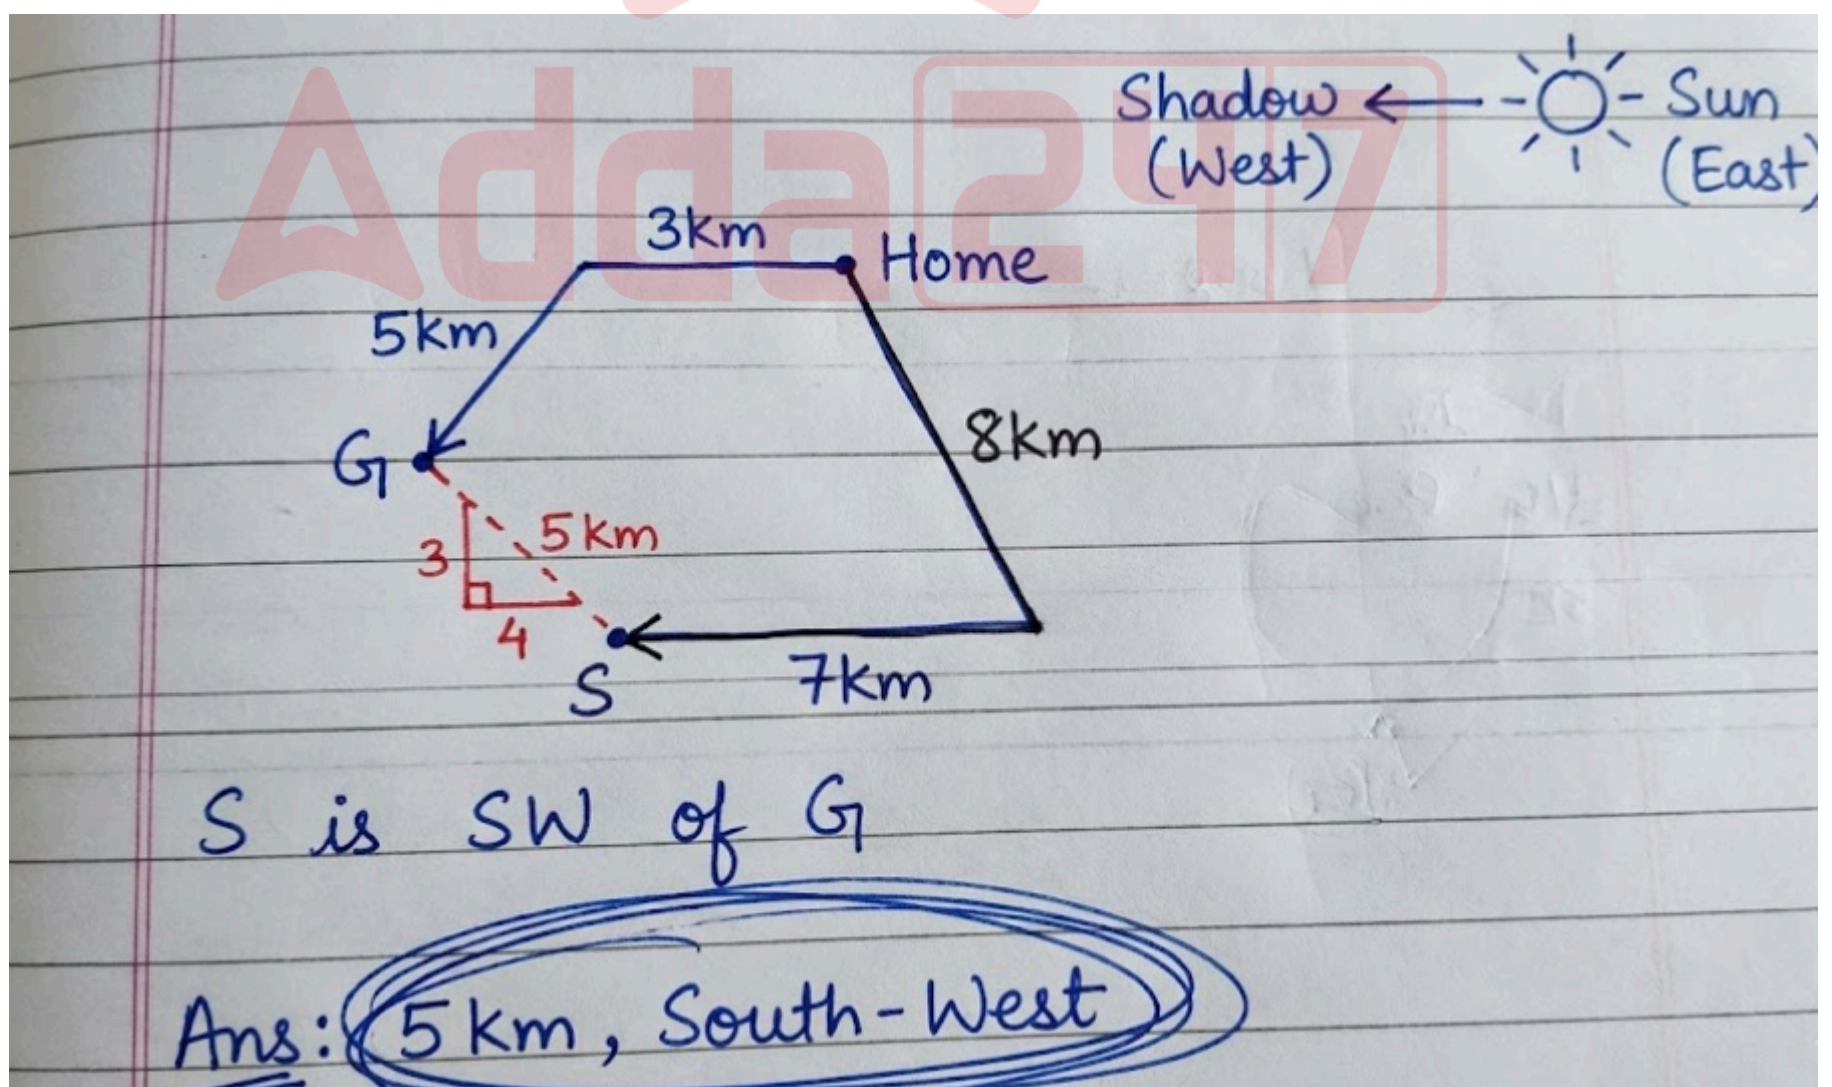 Adda247
Shadow
(West)
Sun
(East)
3km
Home
5km
8km
G
5km
3
4
S
7km
S is SW of G
Ans: 5 km, South-West